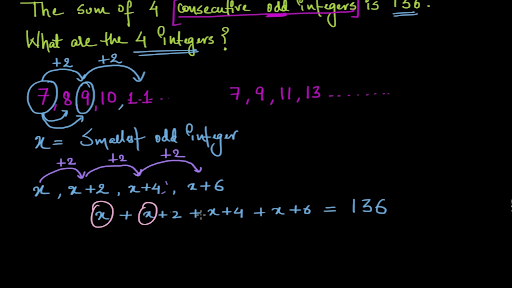 The sum of 4 consecutive odd integers is 136.
What are the 4 integers?
+2 +2
7, 8 9, 10, 11... 7, 9, 11, 13 ........
x = Smallest odd integer
+2 +2 +2
x, x+2, x+4, x+6
x + x+2 + x+4 + x+6 = 136